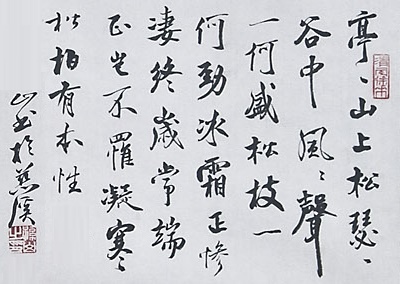 亭〻山上松瑟〻
谷中風〻聲
一何盛松枝一
何勁冰霜正慘
凄終歲常端
正豈不罹凝寒
松柏有本性
書於慈溪